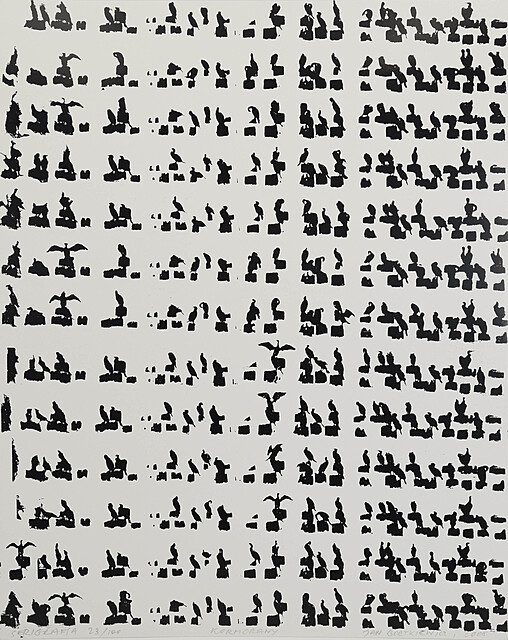 SERIGRAFIA 23/100 KORMORANY JAN